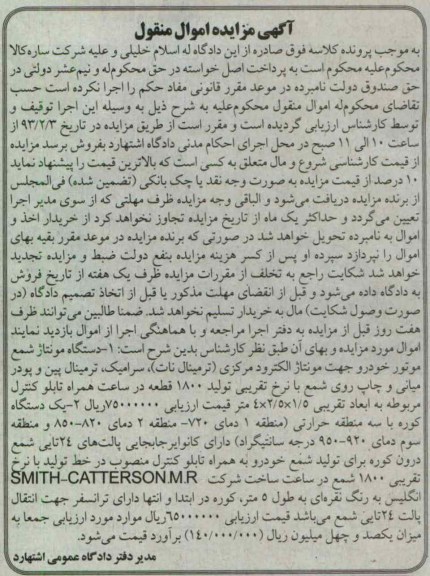 آگهی مزایده اموال منقول
به موجب پرونده کلاسه فوق صادره از این دادگاه له اسلام خلیلی و علیه شرکت ساره کالا
محکوم‌علیه محکوم است به پرداخت اصل خواسته در حق محکوم‌له و نیم‌عشر دولتی در
حق صندوق دولت نامبرده در موعد مقرر قانونی مفاد حکم را اجرا نکرده است حسب
تقاضای محکوم‌له اموال منقول محکوم‌علیه به شرح ذیل به وسیله این اجرا توقیف و
توسط کارشناس ارزیابی گردیده است و مقرر است از طریق مزایده در تاریخ ۹۳/۲/۳ از
ساعت ۱۰ الی ۱۱ صبح در محل اجرای احکام مدنی دادگاه اشتهارد بفروش برسد مزایده
از قیمت کارشناسی شروع و مال متعلق به کسی است که بالاترین قیمت را پیشنهاد نماید
۱۰ درصد از قیمت مزایده به صورت وجه نقد یا چک بانکی (تضمین شده) فی‌المجلس
از برنده مزایده دریافت می‌شود و الباقی وجه مزایده ظرف مهلتی که از سوی مدیر اجرا
تعیین می‌گردد و حداکثر یک ماه از تاریخ مزایده تجاوز نخواهد کرد از خریدار اخذ و
اموال به نامبرده تحویل خواهد شد در صورتی که برنده مزایده در موعد مقرر بقیه بهای
اموال را نپردازد سپرده او پس از کسر هزینه مزایده بنفع دولت ضبط و مزایده تجدید
خواهد شد شکایت راجع به تخلف از مقررات مزایده ظرف یک هفته از تاریخ فروش
به دادگاه داده می‌شود و قبل از انقضای مهلت مذکور یا قبل از اتخاذ تصمیم دادگاه (در
صورت وصول شکایت) مال به خریدار تسلیم نخواهد شد. ضمنا طالبین می‌توانند ظرف
هفت روز قبل از مزایده به دفتر اجرا مراجعه و با هماهنگی اجرا از اموال بازدید نمایند
اموال مورد مزایده و بهای آن طبق نظر کارشناس بدین شرح است: ۱-دستگاه مونتاژ شمع
موتور خودرو جهت مونتاژ الکترود مرکزی (ترمینال نات)، سرامیک، ترمینال پین و پودر
میانی و چاپ روی شمع با نرخ تقریبی تولید ۱۸۰۰ قطعه در ساعت همراه تابلو کنترل
مربوطه به ابعاد تقریبی ۱/۵×۲/۵×۴ متر قیمت ارزیابی ۷۵۰۰۰۰۰۰ریال ۲-یک دستگاه
کوره با سه منطقه حرارتی (منطقه ۱ دمای ۷۲۰- منطقه ۲ دمای ۸۲۰-۸۵۰ و منطقه
سوم دمای ۹۲۰-۹۵۰ درجه سانتیگراد) دارای کانوایرجابجایی پالت‌های ۲۴تایی شمع
درون کوره برای تولید شمع خودرو به همراه تابلو کنترل منصوب در خط تولید با نرخ
تقریبی ۱۸۰۰ شمع در ساعت ساخت شرکت SMITH-CATTERSON.M.R
انگلیس به رنگ نقره‌ای به طول ۵ متر، کوره در ابتدا و انتها دارای ترانسفر جهت انتقال
پالت ۲۴تایی شمع می‌باشد قیمت ارزیابی ۶۵۰۰۰۰۰۰ریال موارد مورد ارزیابی جمعا به
میزان یکصد و چهل میلیون ریال (۱۴۰/۰۰۰/۰۰۰) برآورد قیمت می‌شود.
مدیر دفتر دادگاه عمومی اشتهارد